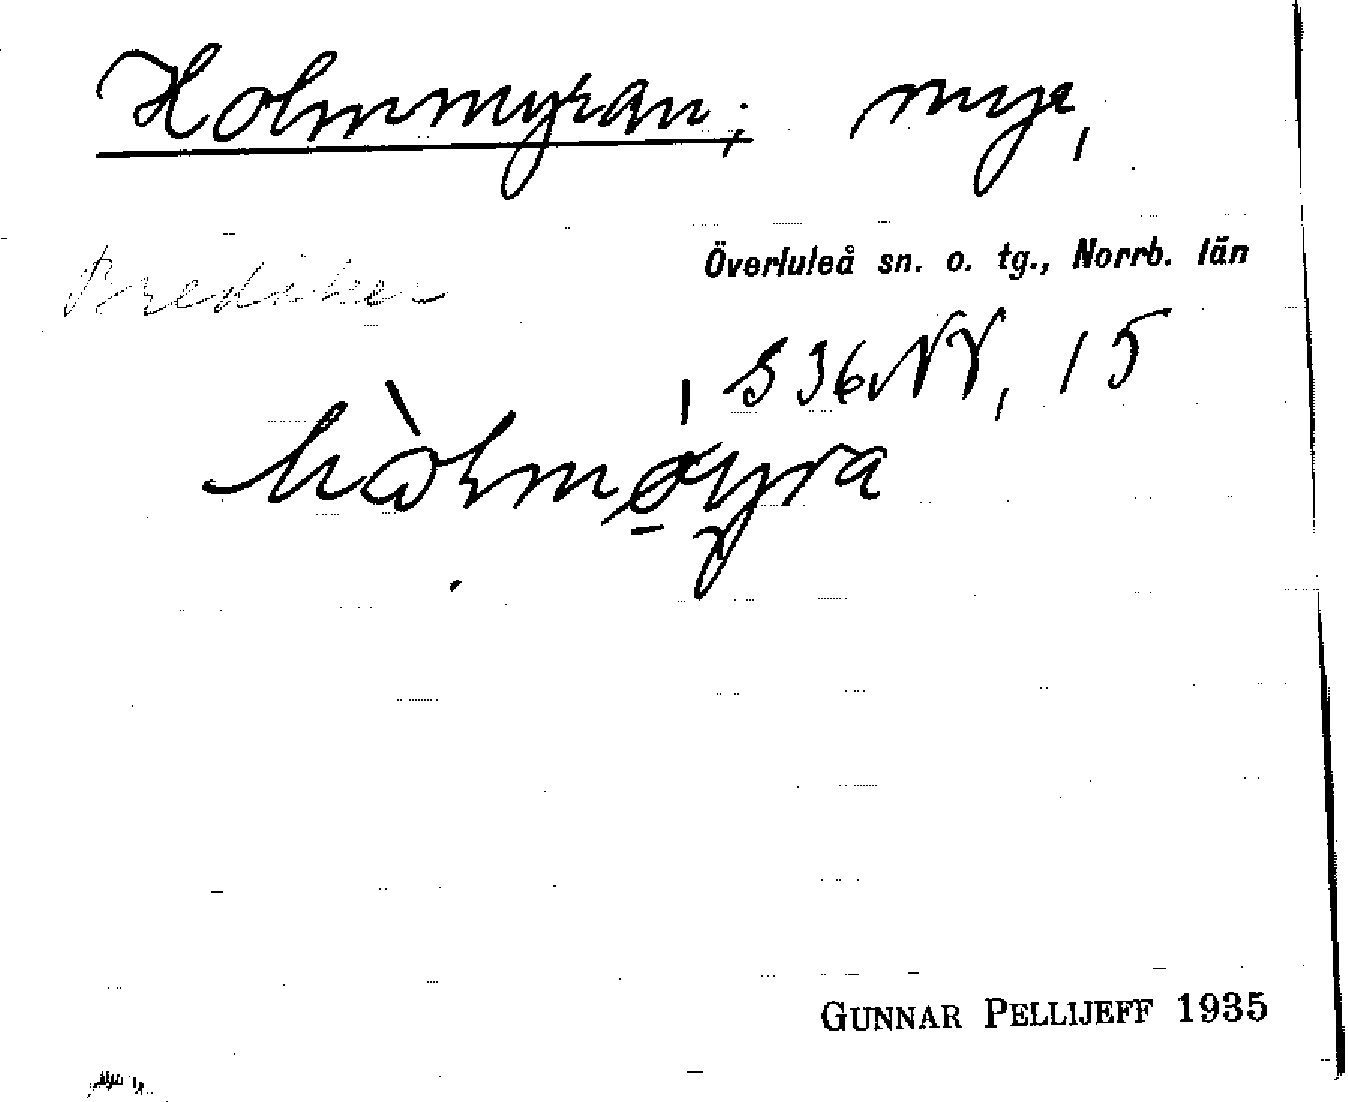 Holmmyran; myr,
Överluleå sn. o. tg., Norrb. län
Bredåker
S 36 NV, 15
GUNNAR PELLIJEFF 1935